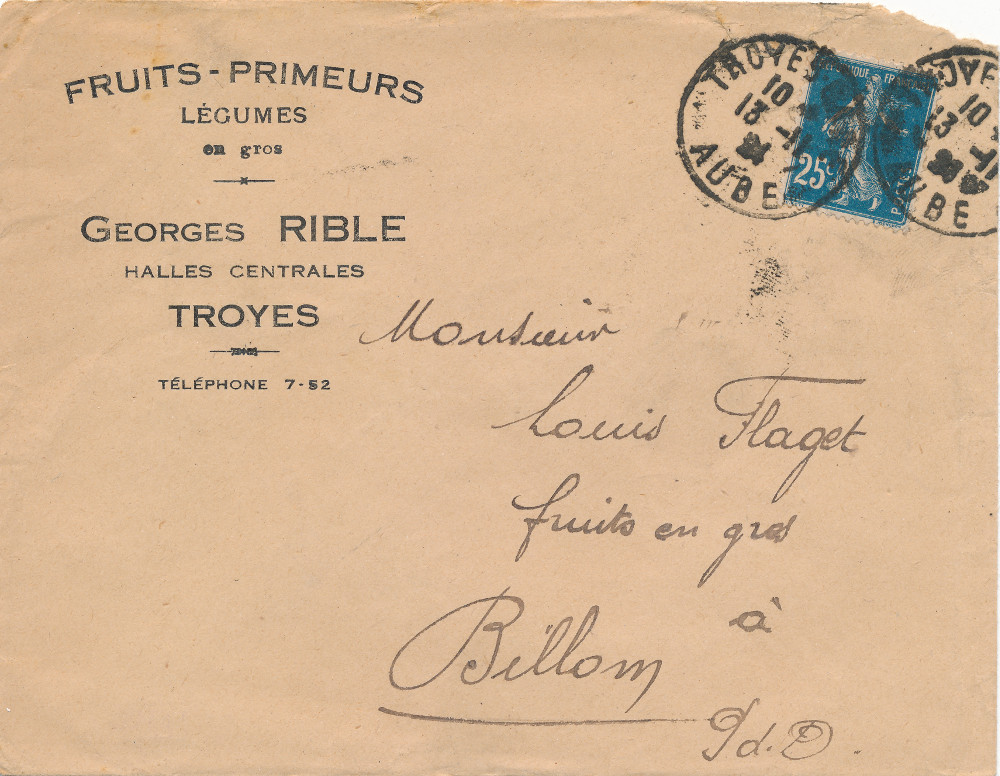 FRUITS - PRIMEURS
LÉGUMES
en gros
GEORGES RIBLE
HALLES CENTRALES
TROYES
TÉLÉPHONE 7-52
TROYES
10
13 -11
AUBE
25c
10
13 -11
AUBE
Monsieur
Louis Flaget
fruits en gros
à
Billom
P.d.D.